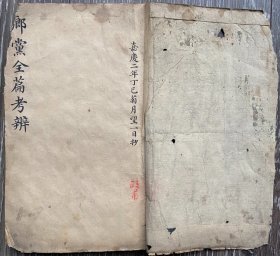 嘉慶二年丁巳菊月望一日抄
郎黨全篇考辨